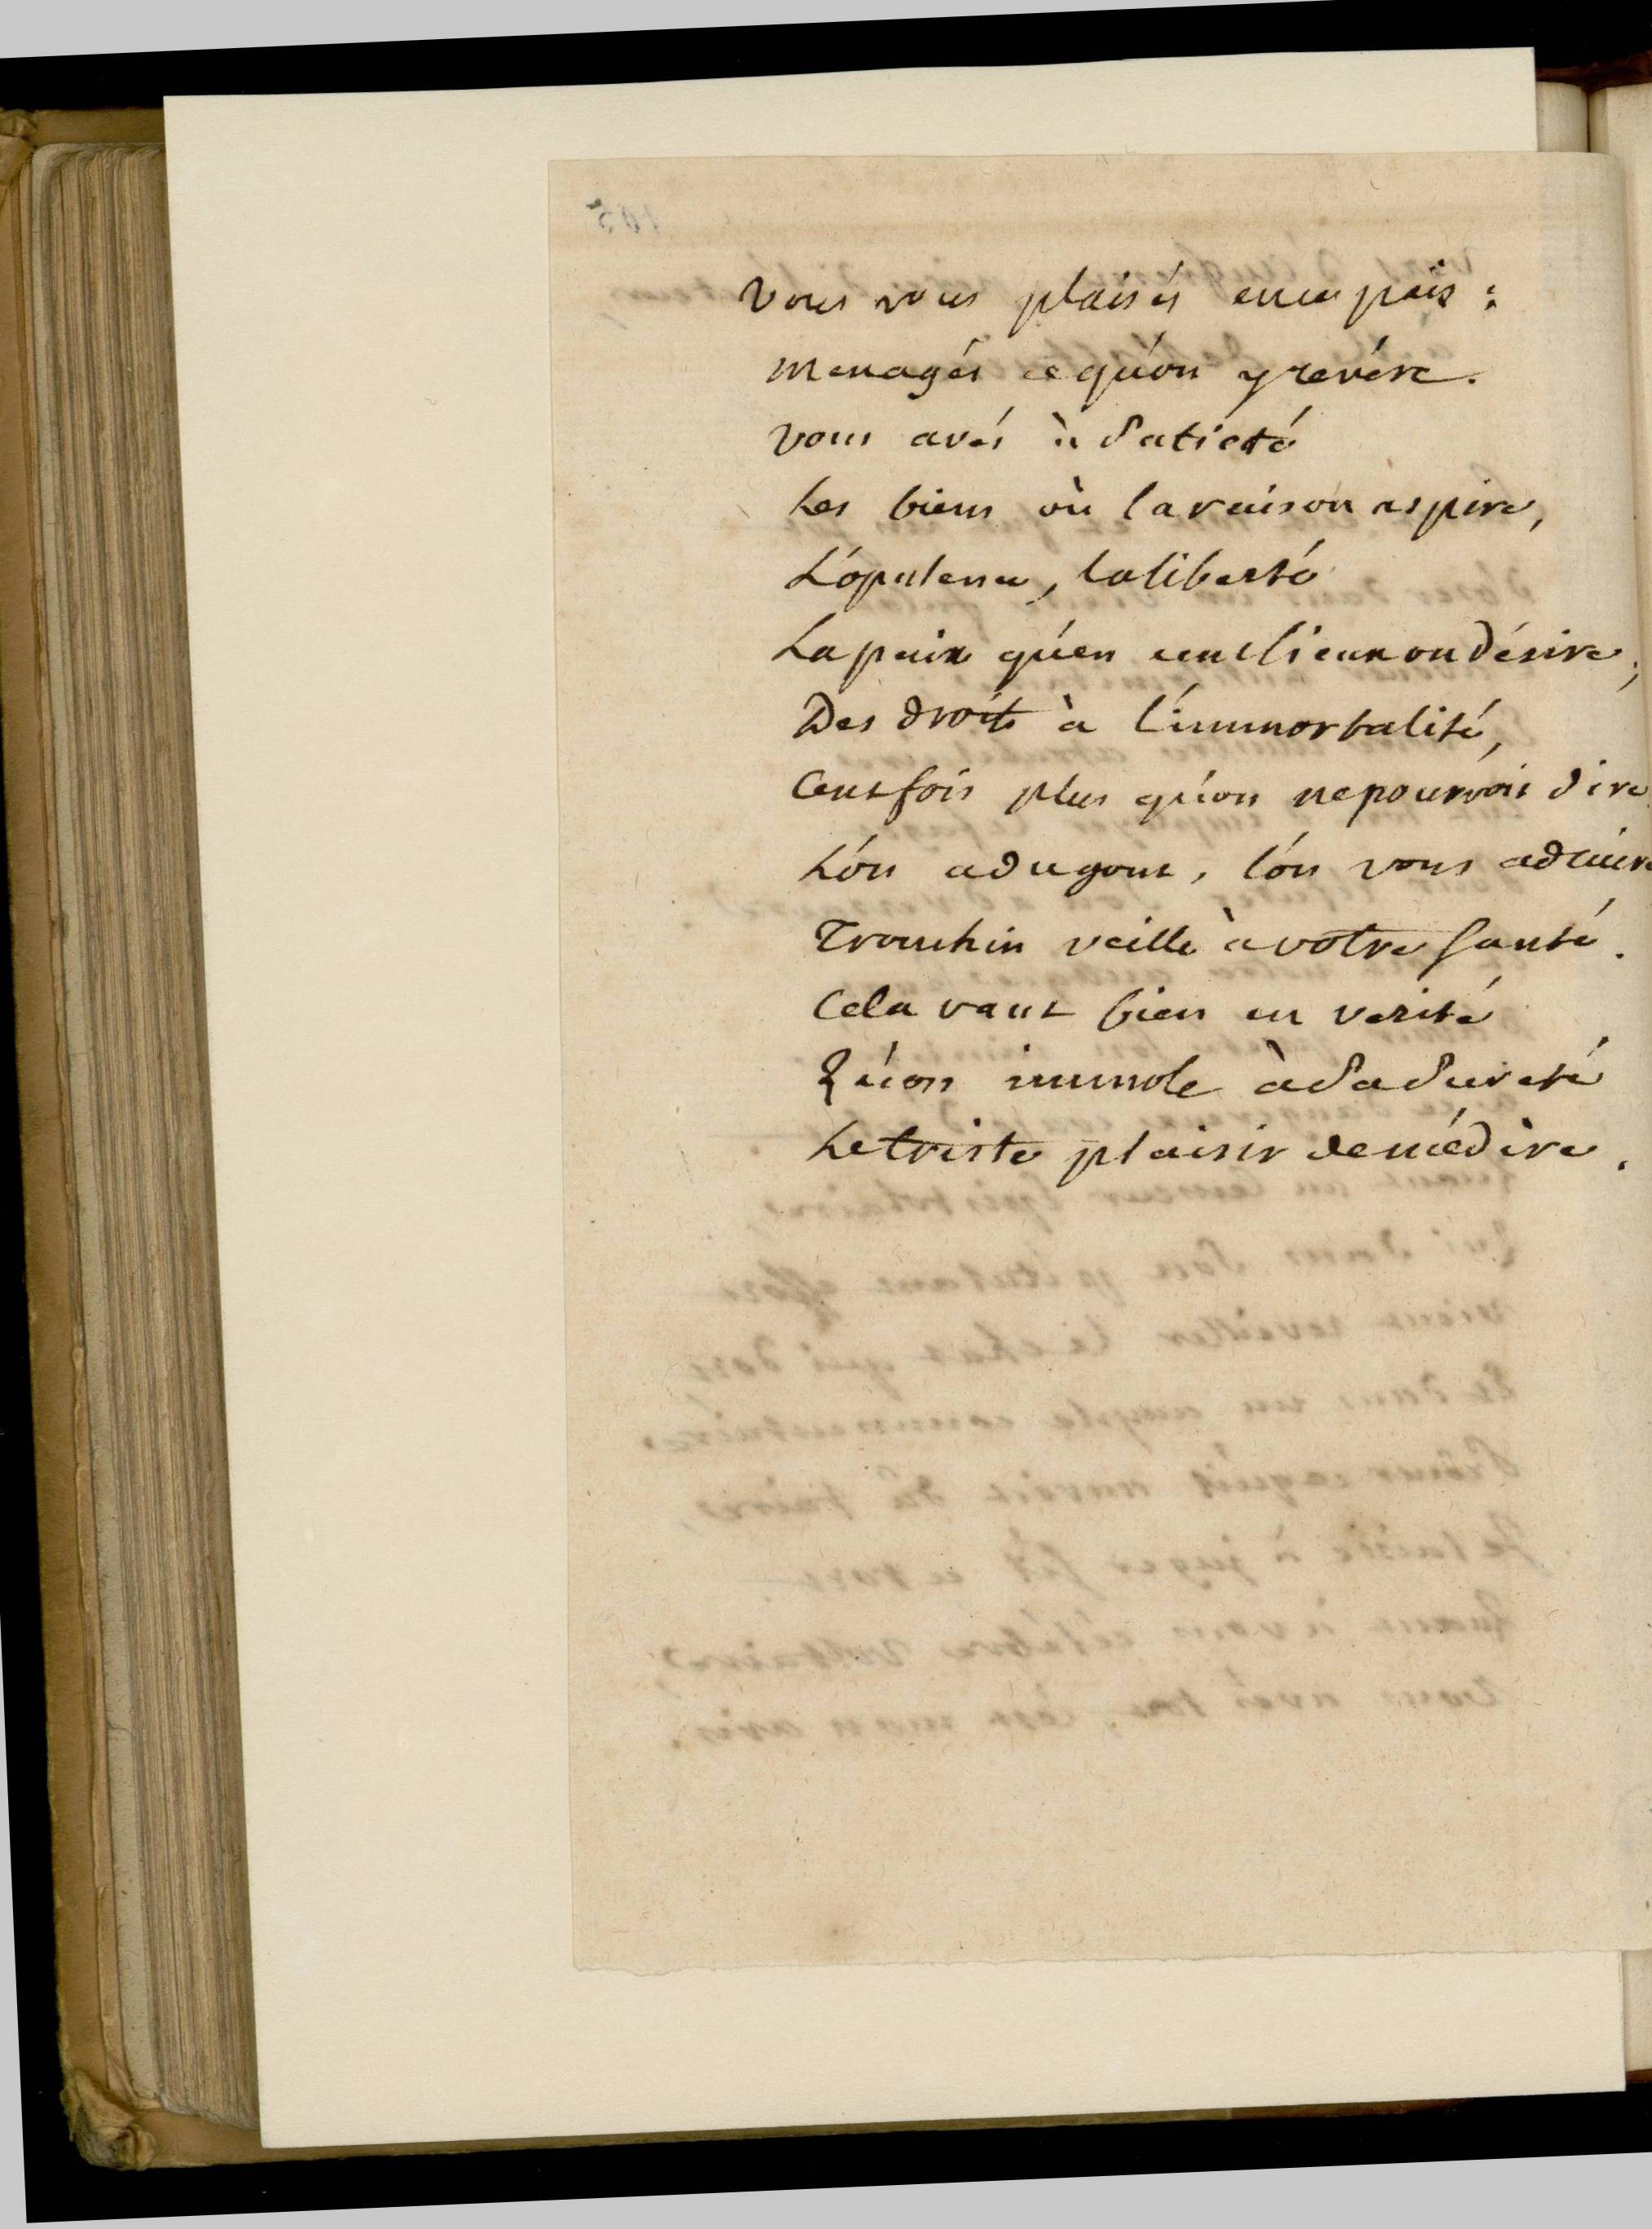 Vous vous plaisés en ce païs :
menagés ce qu'on y revére.
vous avés à satieté
Les biens où la raison aspire,
L'opulence, la liberté
La paix qu'en cent lieux on désire,
Des droits à l'immortalité,
Cent fois plus qu'on ne pourroit dire
L'on a du gout, l'on vous admire
Tronchin veille à votre santé.
Cela vaut bien en verité
Qu'on immole à sa sureté
Le triste plaisir de médire.